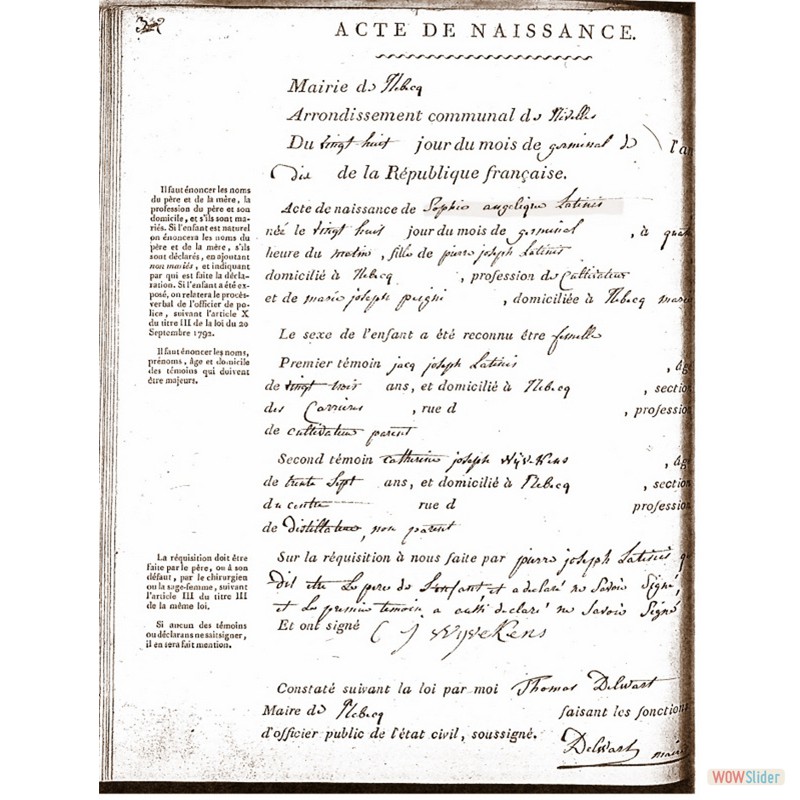 ACTE DE NAISSANCE.
Mairie de Rebecq
Arrondissement communal de Nivelles
Du vingt huit jour du mois de germinal de l'an
Dix de la République française.
Acte de naissance de Sophie angelique Latinis
née le vingt huit jour du mois de germinal , à quat
heure du matin , fille de pierre joseph Latinis
domicilié à Rebecq , profession de Cultivateur
et de marie joseph , domiciliée à Rebecq marié
Le sexe de l'enfant a été reconnu être femelle
Premier témoin jacq joseph Latinis , âgé
de vingt trois ans, et domicilié à Rebecq , section
des Carrieres , rue d , profession
de cultivateur parent
Second témoin catherine joseph Wyvekens , âgé
de trente Sept ans, et domicilié à Rebecq , section
du centre rue d profession
de distillateur, non parent
Sur la réquisition à nous faite par pierre joseph Latinis q
dit être Le pere de L'enfant et a declaré ne Savoir Signé,
et Le premier temoin a aussi declaré ne Savoir Signé
Et ont signé C J Wyvekens
Constaté suivant la loi par moi Thomas Delwart
Maire de Rebecq faisant les fonctions
d'officier public de l'état civil, soussigné.
Delwart maire
Il faut énoncer les noms
du père et de la mère, la
profession du père et son
domicile, et s'ils sont ma-
riés. Si l'enfant est naturel
on énoncera les noms du
père et de la mère, s'ils
sont déclarés, en ajoutant
non mariés, et indiquant
par qui est faite la décla-
ration. Si l'enfant a été ex-
posé, on relatera le procès-
verbal de l'officier de po-
lice, suivant l'article X
du titre III de la loi du 20
Septembre 1792.
Il faut énoncer les noms,
prénoms, âge et domicile
des témoins qui doivent
être majeurs.
La réquisition doit être
faite par le père, ou à son
défaut, par le chirurgien
ou la sage-femme, suivant
l'article III du titre III
de la même loi.
Si aucun des témoins
ou déclarans ne sait signer,
il en sera fait mention.
WOWSlider